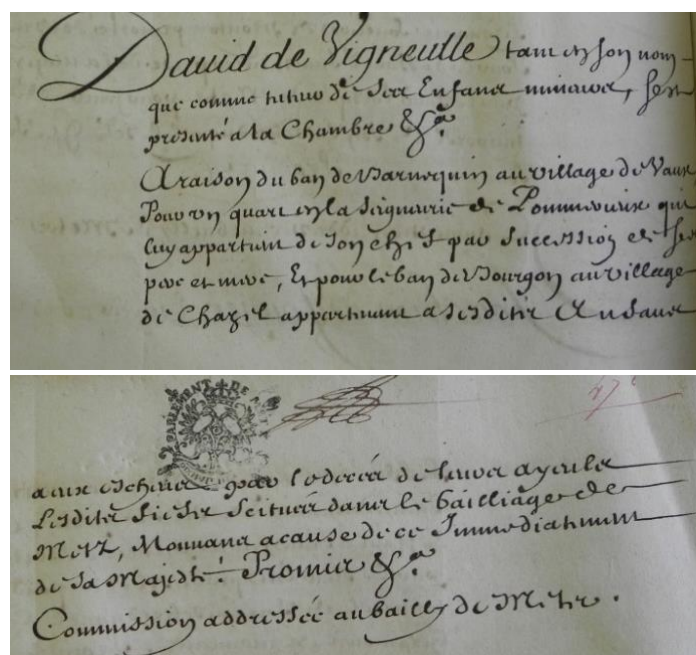 Dauid de Vigneulle tant en son nom
que comme tuteur de ses Enfans mineurs, sest
presenté a la Chambre &ca
A raison du ban de Barnequin au village de Vaux
Pour un quart en la seigneurie de Pommerieux qui
luy appartient de son chef par succession de ses
pere et mere, Et pour le ban de Bourgon au village
de Chazel appartenant a sesdites Enfans
PARLEMENT DE METZ
47e
a eux escheus par le deces de leurs ayeuls
Lesdits fiefs scitués dans le bailliage de
Metz, Mouvans a cause de ce Immediatement
de sa Majesté. Promis &ca
Commission addressée au bailly de Metz.